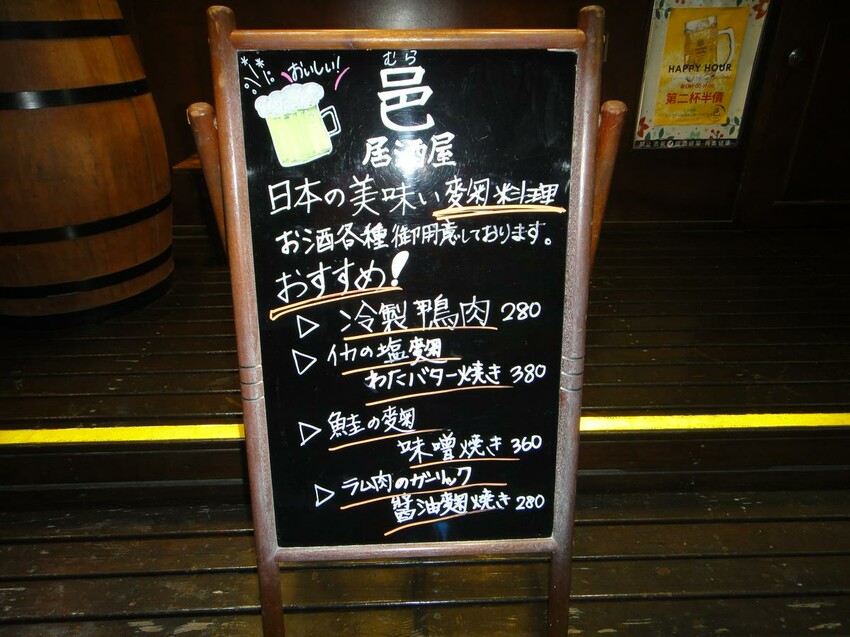 おいしい!
むら
邑
居酒屋
日本の美味い麹料理
お酒各種御用意しております。
おすすめ!
▷ 冷製鴨肉 280
▷ イカの塩麹
わたバター焼き 380
▷ 鮭の麹
味噌焼き 360
▷ ラム肉のガーリック
醬油麹焼き 280
HAPPY HOUR
第二杯半價